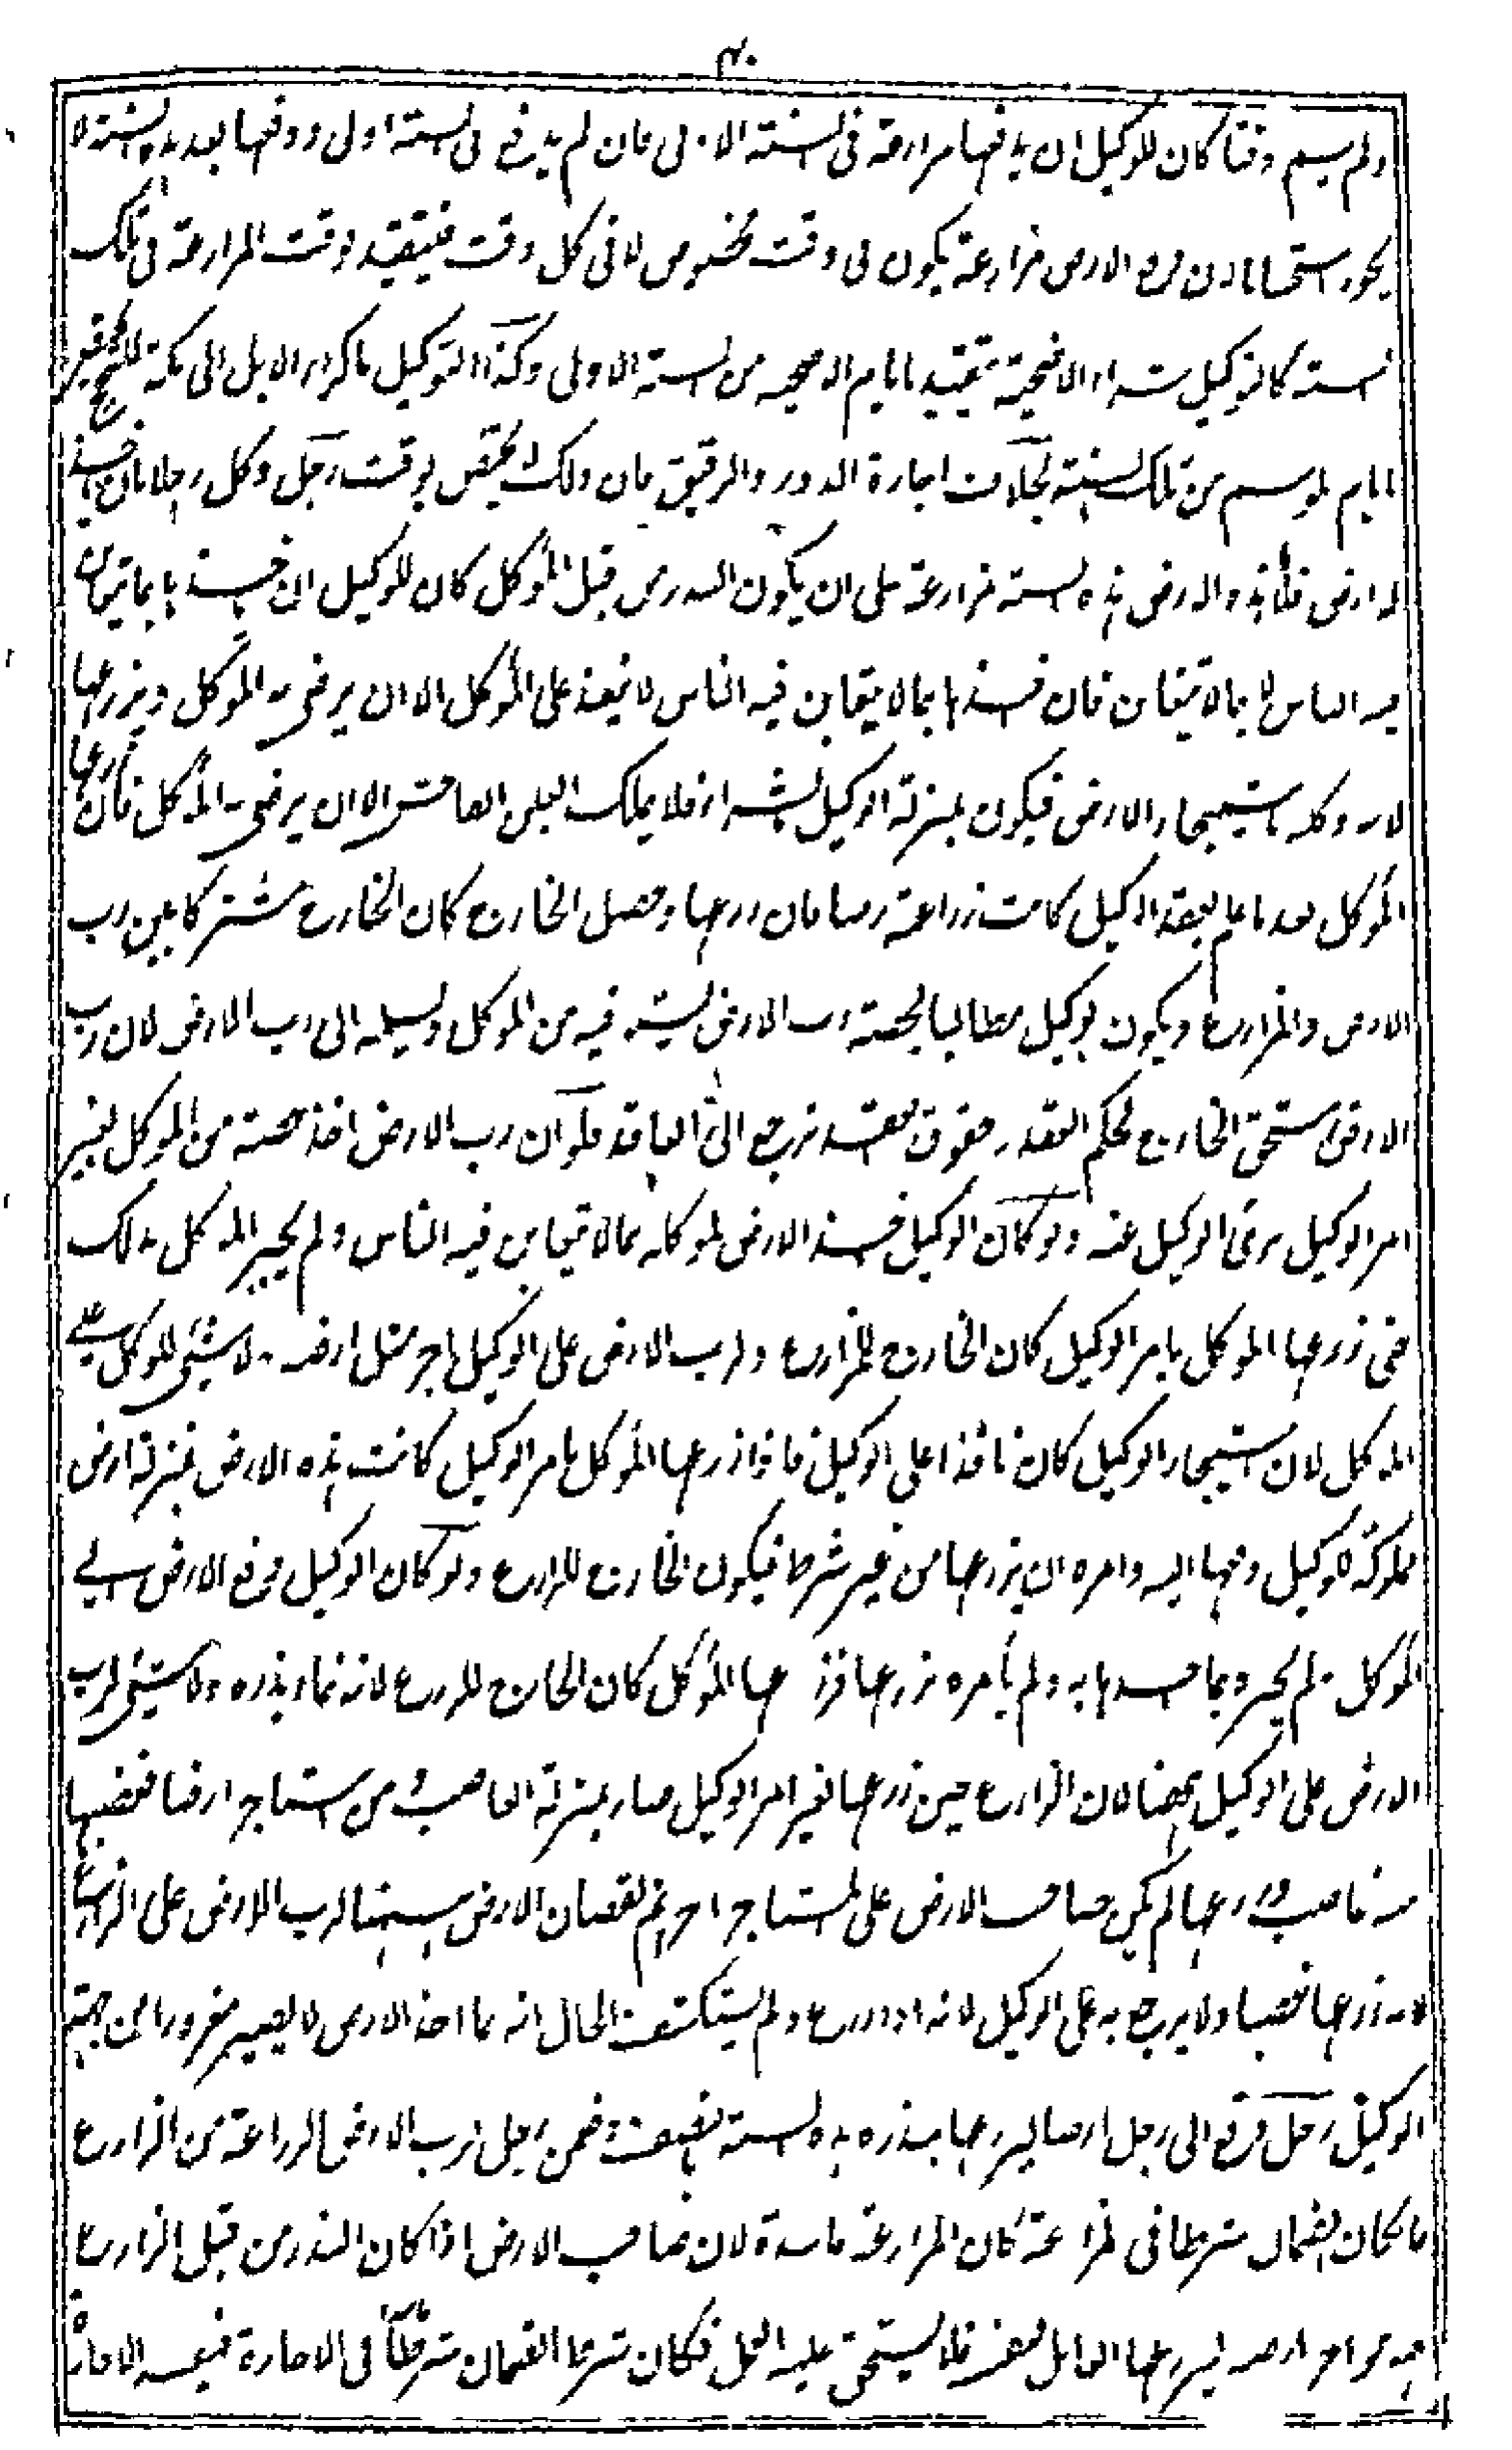 ولم يسم وقتا كان للوكيل ان يدفعها مزارعة فى السنة الاولى فان لم يدفع فى السنة الاولى ودفعها بعد هذه السنة لا
يجوز استحسانا لان دفع الارض مزارعة يكون فى وقت مخصوص لا فى كل وقت فيتقيد بوقت المزارعة فى تلك
السنة كالتوكيل بشراء الاضحية يتقيد بايام الاضحية من السنة الاولى وكذا التوكيل باكراء الابل الى مكة للحج
بايام الموسم من تلك السنة بخلاف اجارة الدور والرقيق فان ذلك لا يختص بوقت رجل وكل رجلا بان ياخذ
له ارض فلان هذه الارض هذه السنة مزارعة على ان يكون البذر من قبل الموكل كان للوكيل ان ياخذها بما يتغابن
فيه الناس لا بما لا يتغابن فان اخذها بما لا يتغابن فيه الناس لا ينفذ على الموكل الا ان يرضى به الموكل ويزرعها
لانه وكله باستيجار الارض فيكون بمنزلة الوكيل بالشراء فلا يملك الغبن الفاحش الا ان يرضى به الموكل فان زرعها
الموكل بعد ما علم بعقد الوكيل كانت زراعته رضا فان زرعها وحصل الخارج كان الخارج مشتركا بين رب
الارض والمزارع ويكون الوكيل مطالبا بحصة رب الارض يستوفيه من الموكل ويسلمه الى رب الارض لان رب
الارض يستحق الخارج بحكم العقد وحقوق العقد ترجع الى العاقد فلو ان رب الارض اخذ حصته من الموكل بغير
امر الوكيل برئ الوكيل عنه ولو كان الوكيل اخذ الارض لموكله بما لا يتغابن فيه الناس ولم يخبر الموكل بذلك
حتى زرعها الموكل بامر الوكيل كان الخارج للمزارع ولرب الارض على الوكيل اجر مثل ارضه ولا شئ للوكيل على
الموكل لان استيجار الوكيل كان نافذا على الوكيل فاذا زرعها الموكل بامر الوكيل كانت هذه الارض بمنزلة ارض
مملوكة للوكيل دفعها اليه وامره ان يزرعها من غير شرط فيكون الخارج للمزارع ولو كان الوكيل دفع الارض الى
الموكل ولم يخبره بما اخذها به ولم يأمره بزرعها فزرعها الموكل كان الخارج للمزارع لانه نماء بذره ولا شئ لرب
الارض على الوكيل ههنا لان المزارع حين زرعها بغير امر الوكيل صار بمنزلة الغاصب ومن استاجر ارضا فغصبها
منه غاصب وزرعها لم يكن لصاحب الارض على المستاجر اجر ثم نقصان الارض ههنا لرب الارض على المزارع
لانه زرعها غصبا ولا يرجع به على الوكيل لانه اذا زرع ولم يستكشف الحال انه بما اخذ الارض لا يصير مغرورا من جهة
الوكيل رجل دفع الى رجل ارضا ليزرعها ببذره هذه السنة بالنصف وضمن رجل لرب الارض الزراعة من المزارع
فان كان الضمان شرطا فى المزارعة كان المزارعة فاسدة لان صاحب الارض اذا كان البذر من قبل المزارع
ارضه ليزرعها العامل لنفسه فلا يستحق عليه العمل فكان شرط الضمان شرطا فى الاجارة فيفسد الاجارة